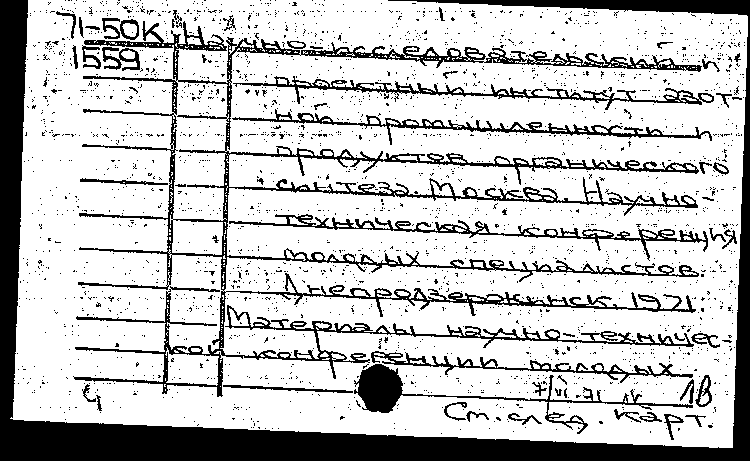 71-50К Научно-исследовательский и
1559
проектный институт азот-
ной промышленности и
продуктов органического
синтеза. Москва. Научно-
техническая конференция
молодых специалистов.
Днепродзержинск. 1971.
Материалы научно-техничес-
кой конференции молодых
1В
Ч
См. след. карт.